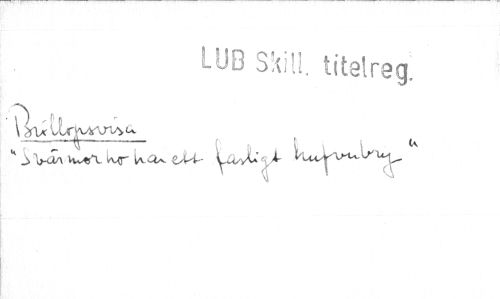 LUB Skill. titelreg.
Bröllopsvisa
"Svärmor ho har ett fasligt hufvubry"